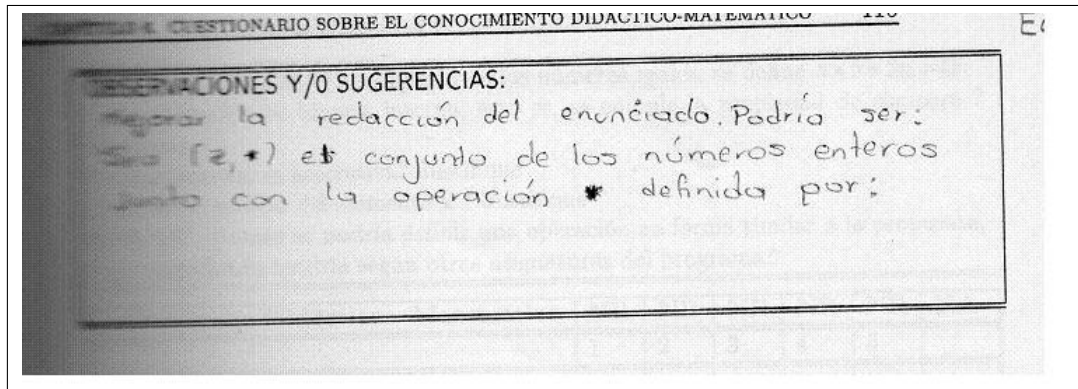 CUESTIONARIO SOBRE EL CONOCIMIENTO DIDÁCTICO-MATEMÁTICO 110
Ed
OBSERVACIONES Y/O SUGERENCIAS:
Mejorar la redacción del enunciado. Podría ser:
Sea (Z, *) el conjunto de los números enteros
junto con la operación * definida por: